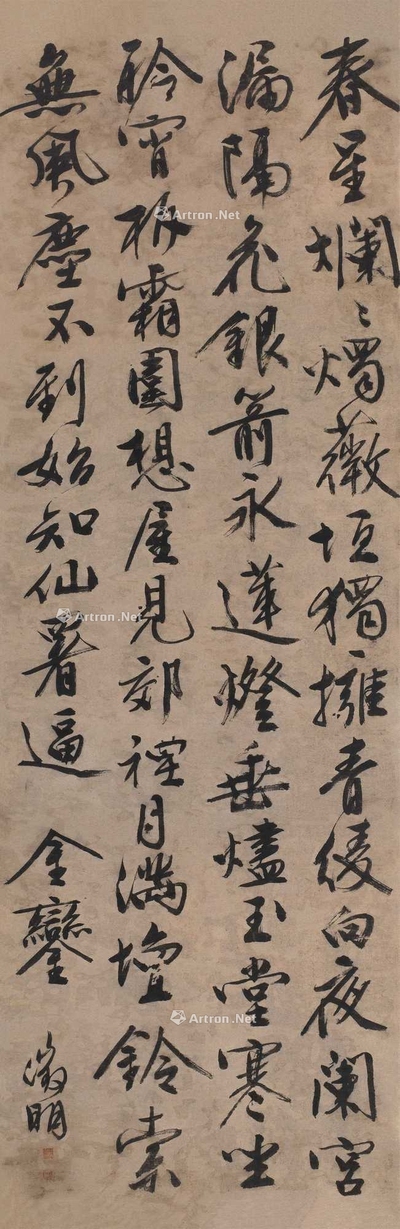 春星爛〻燭薇垣獨擁青綾向夜闌宮
漏隔花銀箭永蓮燈垂燼玉堂寒坐
聆宵柝霜圍想屋見郊禋月滿壇鈴索
無風塵不到始知仙署逼 金鑾
徵明
Artron.Net
Artron.Net
Artron.Net
Artron.Net